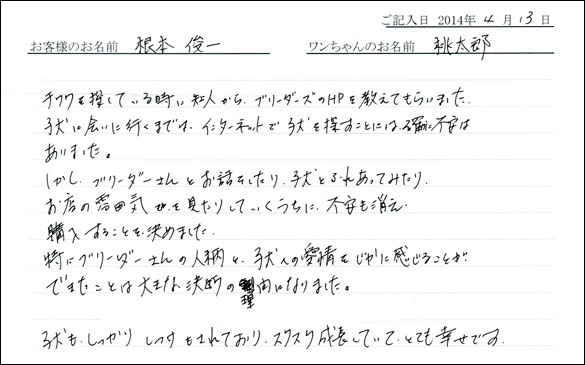 ご記入日 2014年 4 月 13 日
お客様のお名前 根本 俊一 ワンちゃんのお名前 桃太郎
チワワを探している時に知人から、ブリーダーズのHPを教えてもらいました。
子犬に会いに行くまでは、インターネットで子犬を探すことには、確かに不安は
ありました。
しかし、ブリーダーさんとお話をしたり、子犬とふれあってみたり、
お店の雰囲気を見たりしていくうちに、不安も消え、
購入することを決めました。
特にブリーダーさんの人柄と、子犬への愛情をじかに感じることが
できたことは大きな決断の理由になりました。
子犬も、しっかりしつけもされており、スクスク成長していて、とても幸せです。